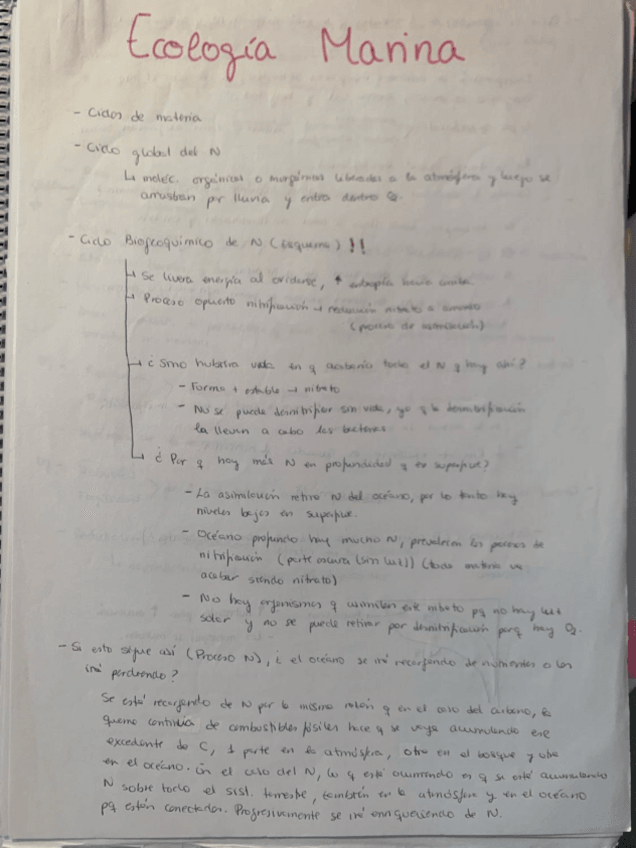 Ecología Marina
- Ciclos de materia
- Ciclo global del N
↳ moléc. orgánicas o inorgánicas liberadas a la atmósfera y luego se
arrastran por lluvia y entra dentro
- Ciclo Biogeoquímico de N (esquema) !!
↳ Se livera energía al oxidarse, ↑ entropía
↳ Proceso opuesto nitrificación → reducción nitrato a amonio
(proceso de asimilación)
↳ ¿Si no hubiera vida en q acabaría todo el N q hay ahí?
- Forma + estable → nitrato
- No se puede desnitrificar sin vida, ya q la desnitrificación
la llevan a cabo las bacterias.
↳ ¿Por q hay más N en profundidad q en superficie?
- La asimilación retira N del océano, por lo tanto hay
niveles bajos en superficie.
- Océano profundo hay mucho N, prevalecen los procesos de
nitrificación (parte oscura (sin luz)) (toda materia va
acabar siendo nitrato)
- No hay organismos q asimilen este nitrato pq no hay luz
solar y no se puede retirar por desnitrificación porq hay O₂.
- Si esto sigue así (Proceso N), ¿el océano se irá recargando de nutrientes o los
irá perdiendo?
Se está recargando de N por la misma razón q en el caso del carbono, la
quema continua de combustibles fósiles hace q se vaya acumulando ese
excedente de C, 1 parte en la atmósfera, otra en el bosque y otra
en el océano. En el caso del N, lo q está ocurriendo es q se está acumulando
N sobre todo el sist. terrestre, también en la atmósfera y en el océano
pq están conectados. Progresivamente se irá enriqueciendo de N.